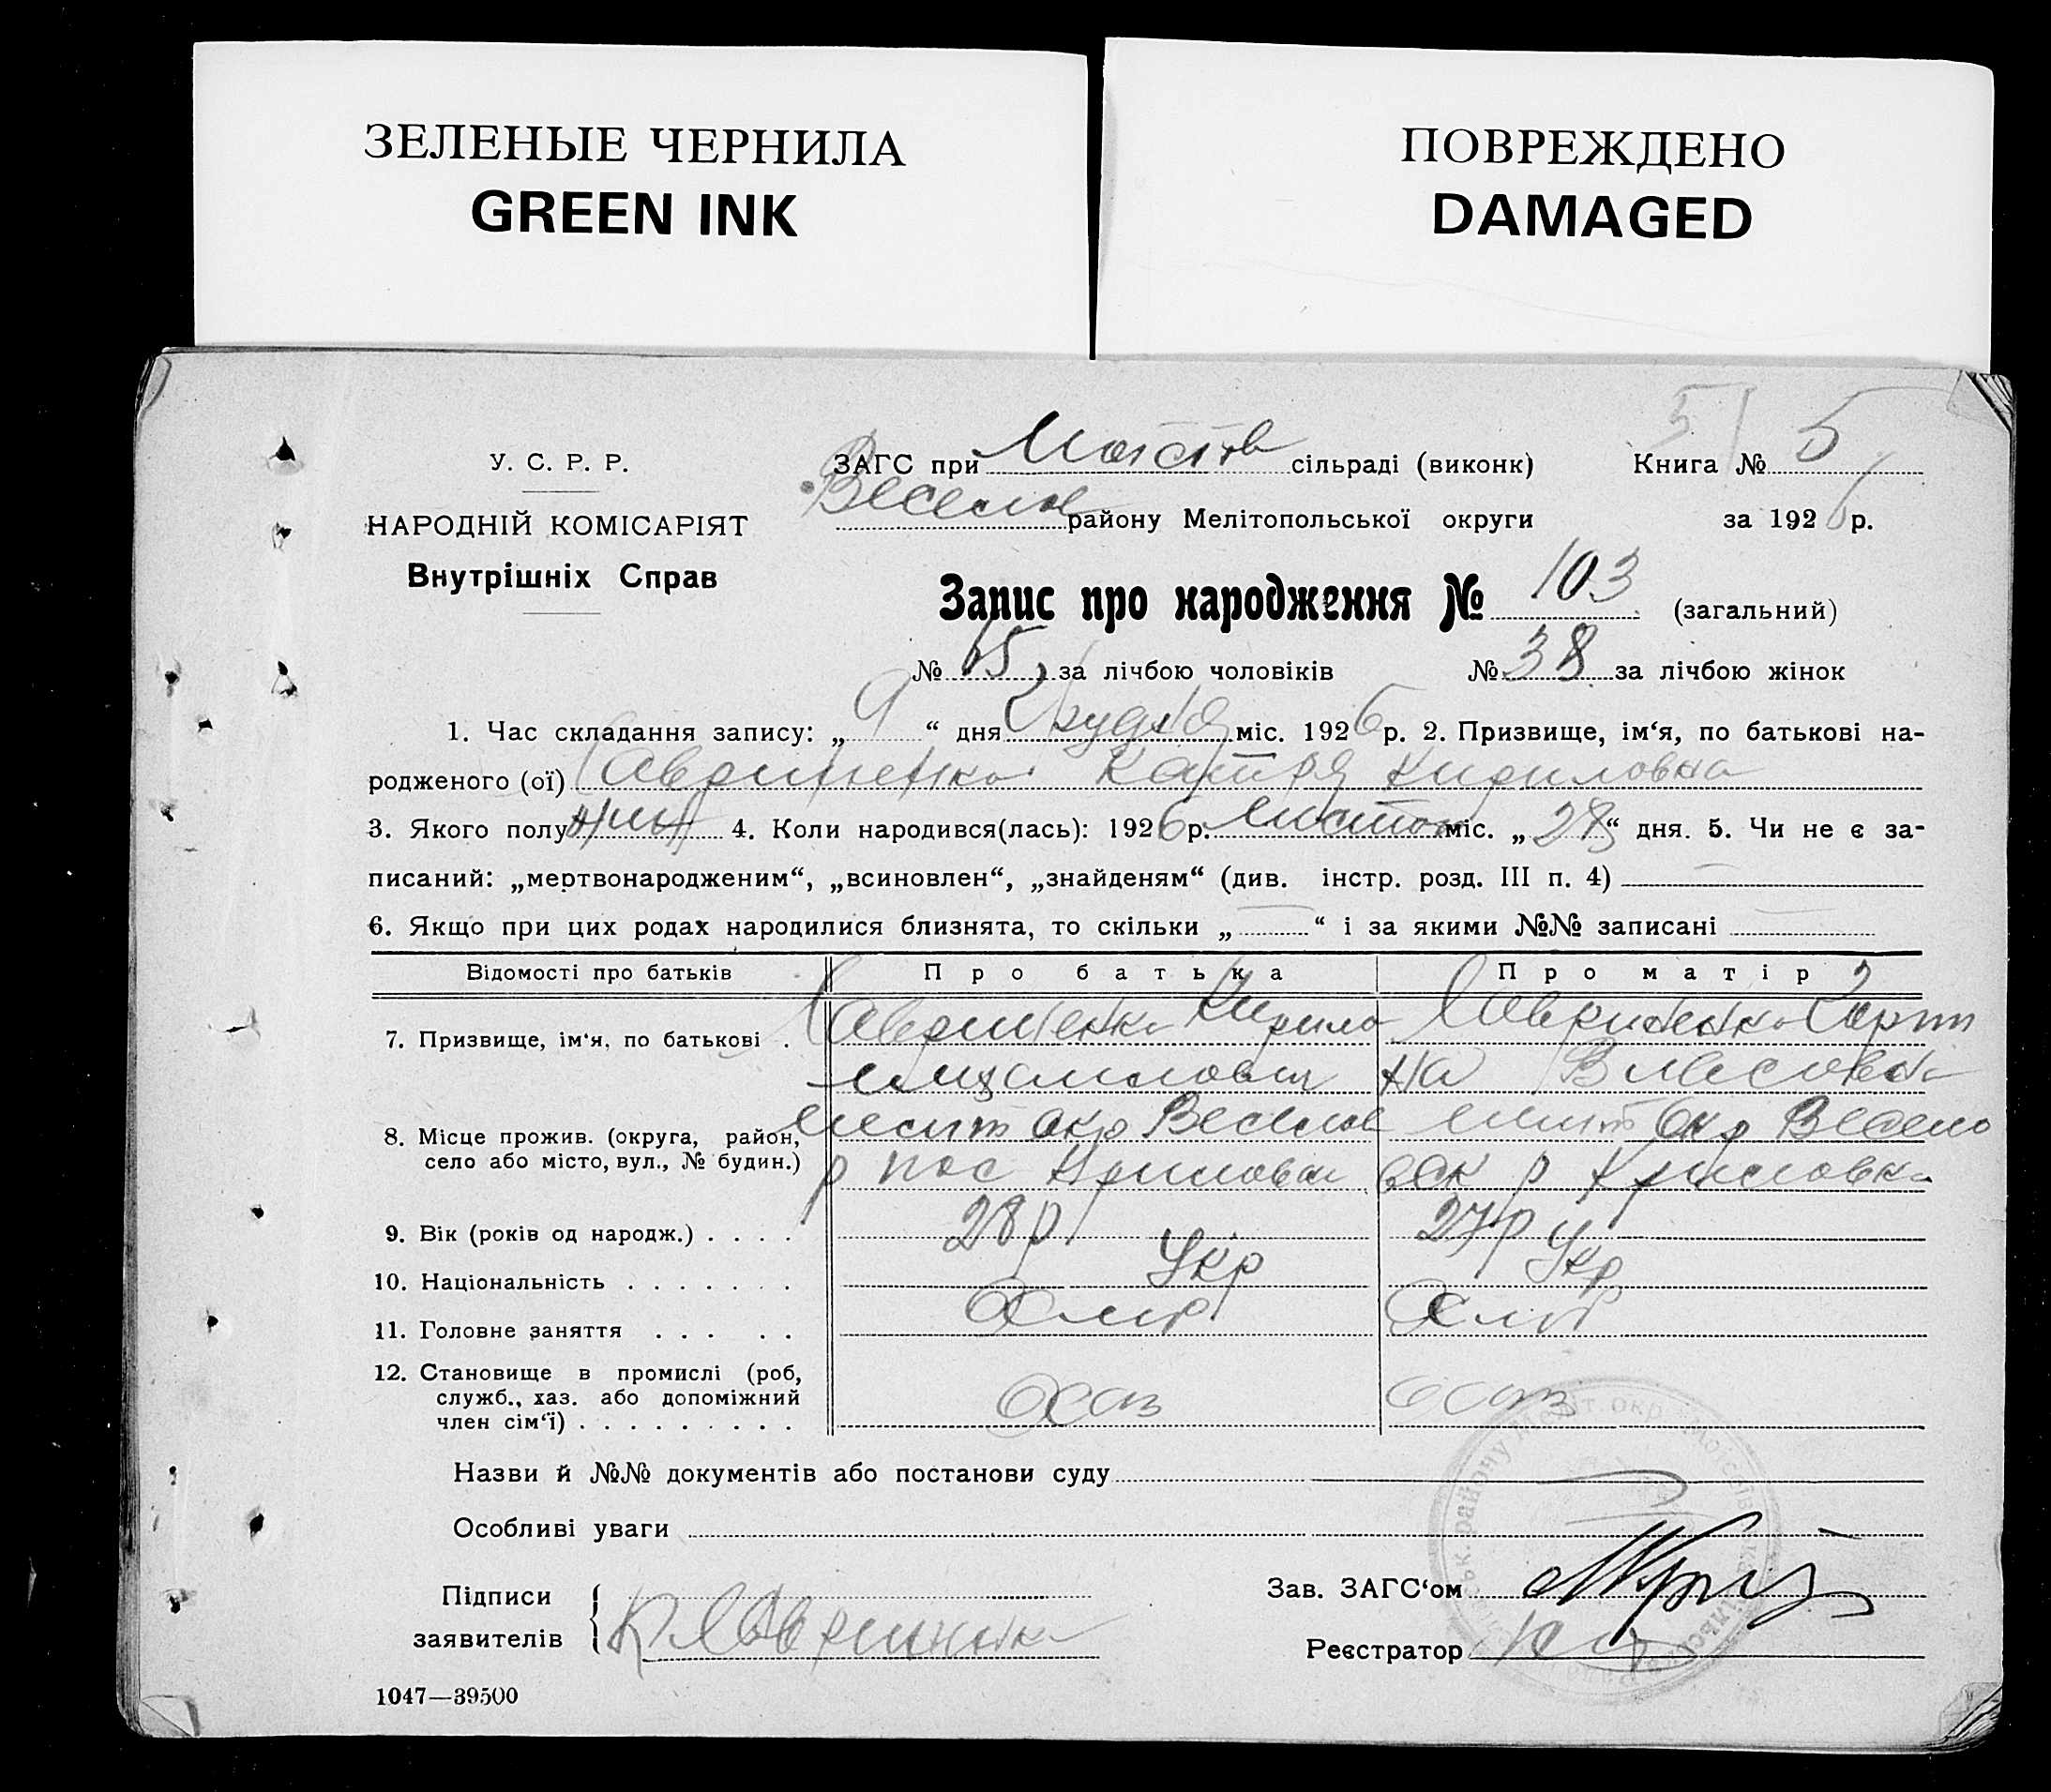 ЗЕЛЕНЫЕ ЧЕРНИЛА
GREEN INK
ПОВРЕЖДЕНО
DAMAGED
У. С. Р. Р.
НАРОДНІЙ КОМІСАРІЯТ
Внутрішніх Справ
ЗАГС при сільраді (виконк) Книга № 5
Весело району Мелітопольської округи за 1926 р.
Запис про народження № 103 (загальний)
№ 65 за лічбою чоловіків № 38 за лічбою жінок
1. Час складання запису: „9“ дня Грудня міс. 1926 р. 2. Призвище, ім‘я, по батькові на-
родженого (ої) Гавриненко Катря Кириловна
3. Якого полу жін 4. Коли народився(лась): 1926 р. листоп міс. „28“ дня. 5. Чи не є за-
писаний: „мертвонародженим“, „всиновлен“, „знайденям“ (див. інстр. розд. III п. 4) —
6. Якщо при цих родах народилися близнята, то скільки „—“ і за якими №№ записані —
Відомості про батьків Про батька Про матір
7. Призвище, ім‘я, по батькові . Гавриненко Кирило Гавриненко
на Власовна
8. Місце прожив. (округа, район, село або місто, вул., № будин.) Меліт окр Весел Меліт окр Весело
р пос вск р
9. Вік (років од народж.) . . . . 28 р 27 р
10. Національність . . . . . . . Укр Укр
11. Головне заняття . . . . . Хліб Хліб
12. Становище в промислі (роб, служб., хаз. або допоміжний член сім‘ї) . . . . . . . . . Хаз Хаз
Назви й №№ документів або постанови суду
Особливі уваги
Підписи
заявителів К Гавриненко
Зав. ЗАГС‘ом
Реєстратор
1047—39500